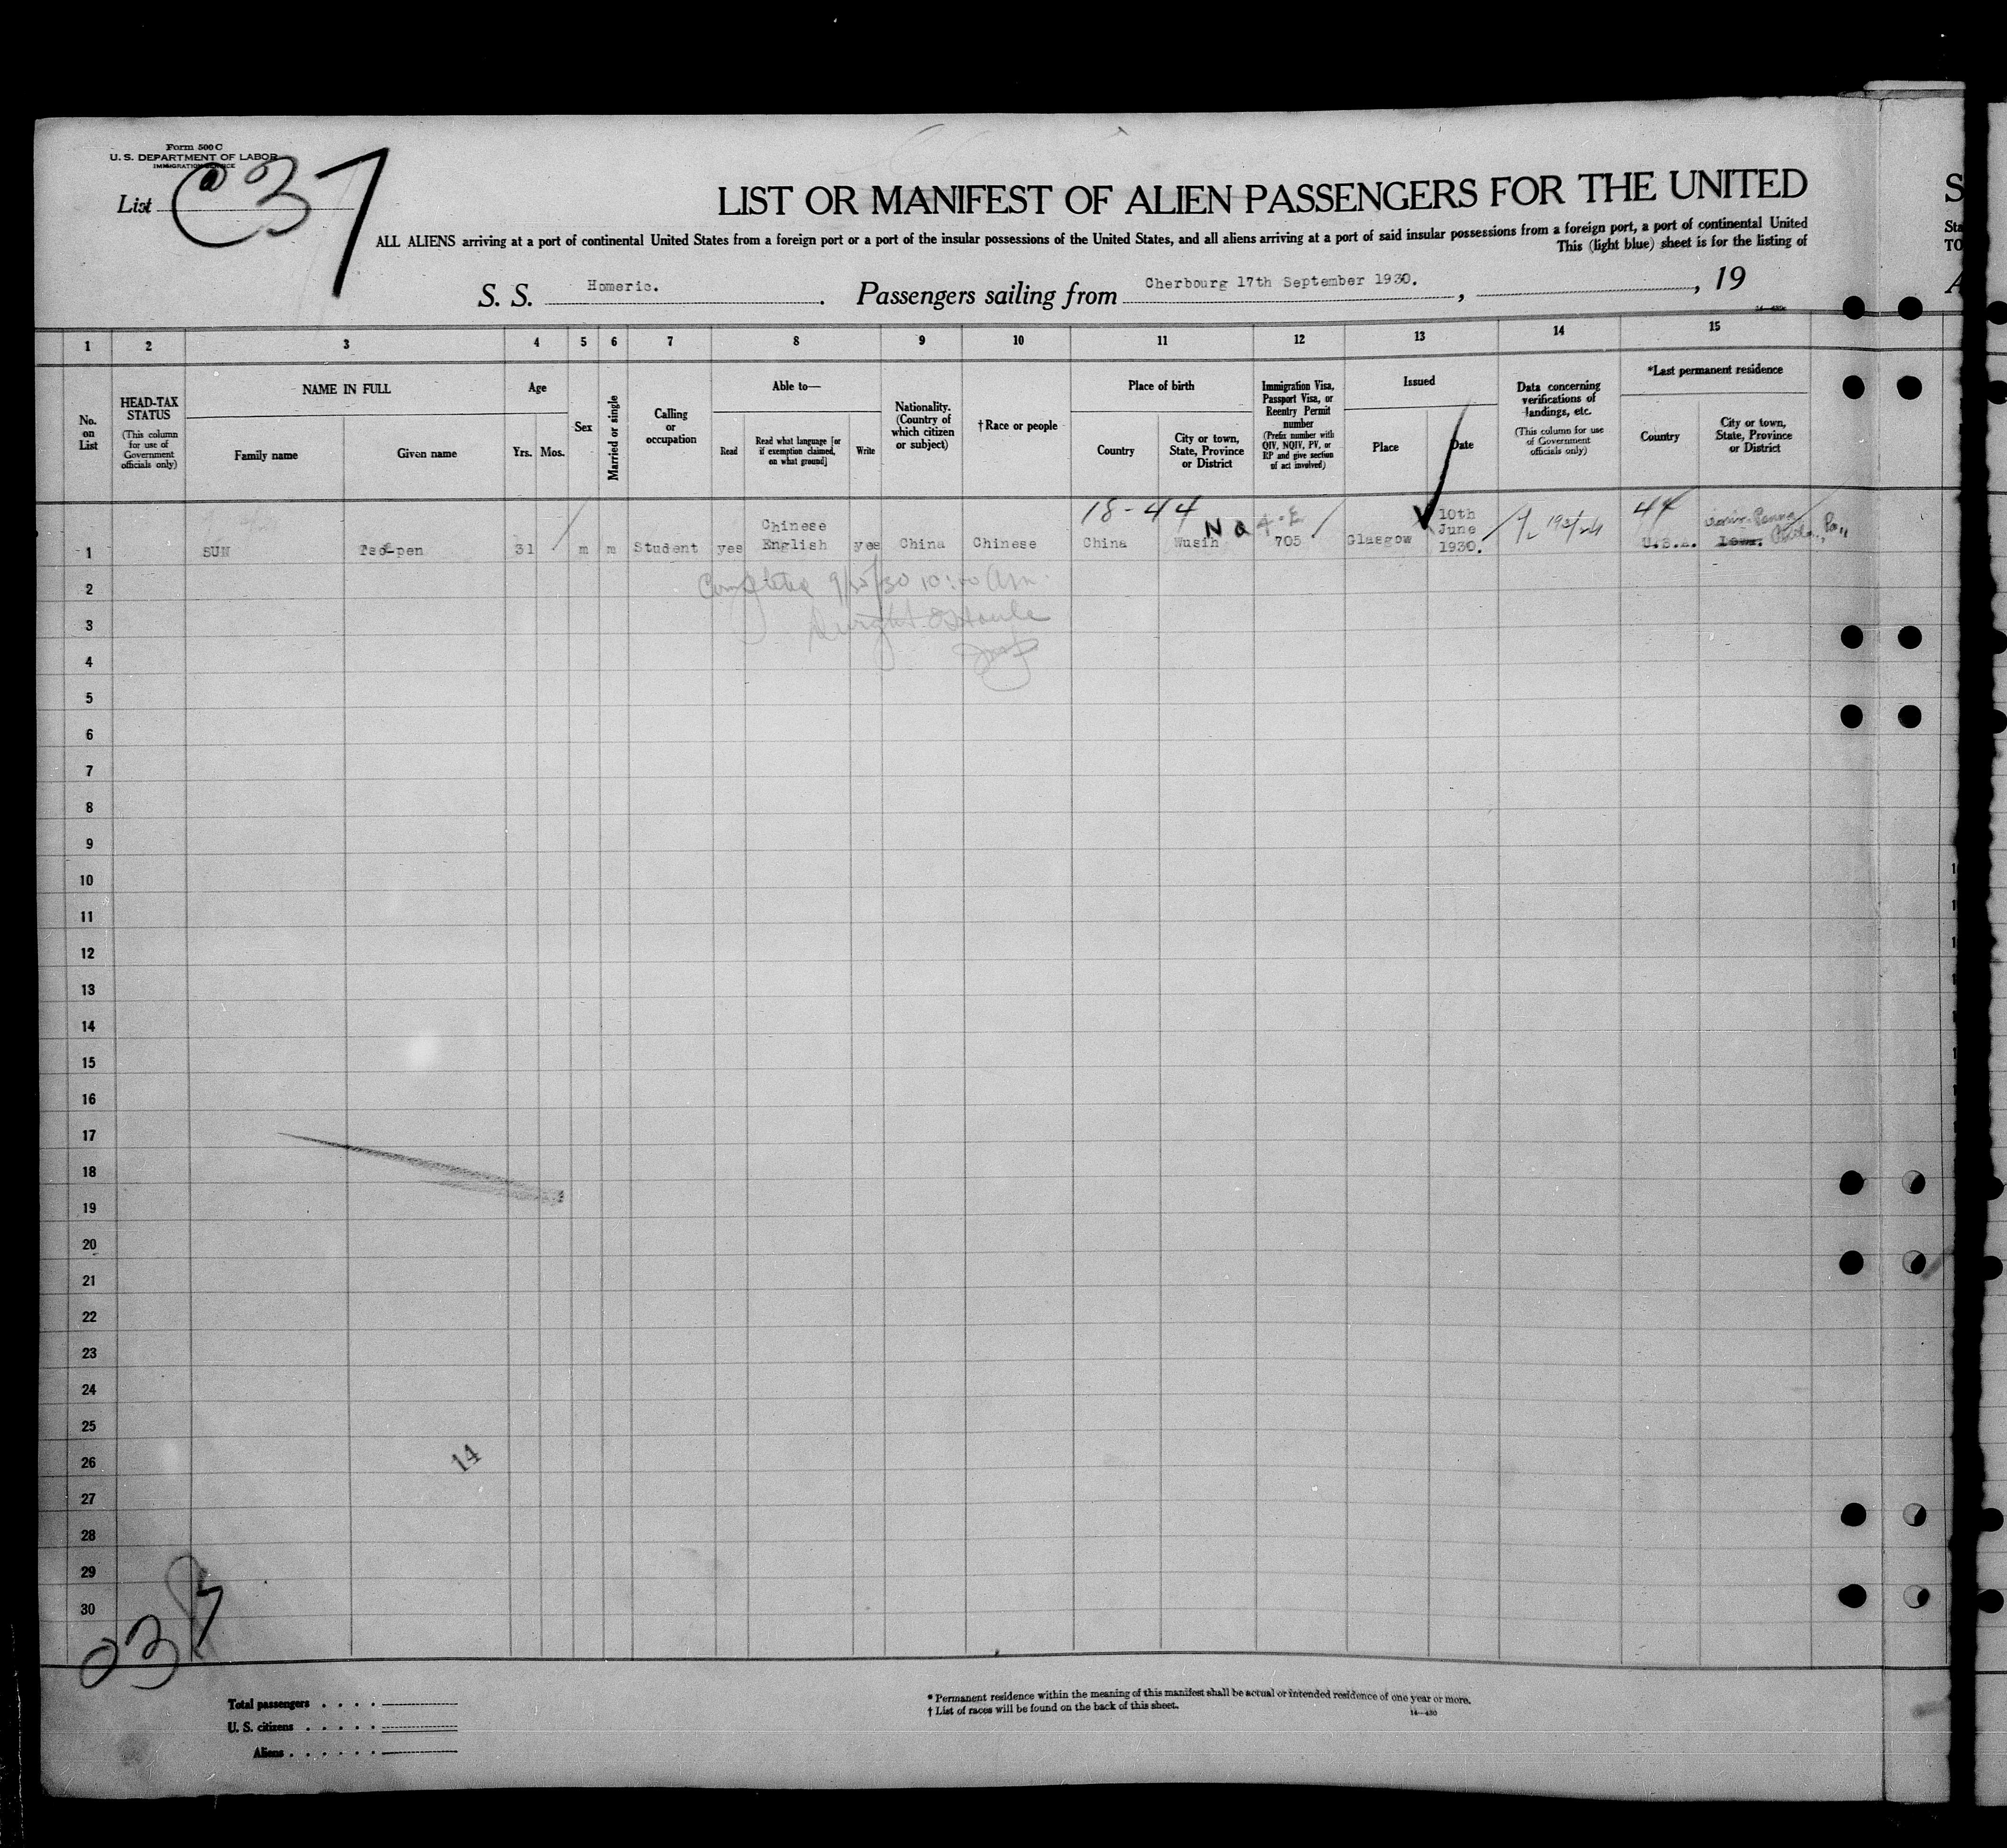 Form 500 C
U. S. DEPARTMENT OF LABOR
IMMIGRATION SERVICE
List 37
LIST OR MANIFEST OF ALIEN PASSENGERS FOR THE UNITED
ALL ALIENS arriving at a port of continental United States from a foreign port or a port of the insular possessions of the United States, and all aliens arriving at a port of said insular possessions from a foreign port, a port of continental United
This (light blue) sheet is for the listing of
S. S. Homeric. Passengers sailing from Cherbourg 17th September 1930. , , 19
1 2 3 4 5 6 7 8 9 10 11 12 13 14 15
No. on List
HEAD-TAX STATUS (This column for use of Government officials only)
NAME IN FULL
Family name Given name
Age
Yrs. Mos.
Sex
Married or single
Calling or occupation
Able to—
Read Read what language [or if exemption claimed, on what ground] Write
Nationality. (Country of which citizen or subject)
† Race or people
Place of birth
Country City or town, State, Province or District
Immigration Visa, Passport Visa, or Reentry Permit number (Prefix number with QIV, NQIV, PV, or RP and give section of act involved)
Issued
Place Date
Data concerning verifications of landings, etc. (This column for use of Government officials only)
*Last permanent residence
Country City or town, State, Province or District
18-44
44
1 SUN Tso-pen 31 m m Student yes Chinese English yes China Chinese China Wusih NQ 705 Glasgow 10th June 1930. U.S.A. Phila., Pa.
Completed
2
3
4
5
6
7
8
9
10
11
12
13
14
15
16
17
18
19
20
21
22
23
24
25
26
14
27
28
29
30
37
Total passengers . . . .
U. S. citizens . . . . .
Aliens . . . . . .
* Permanent residence within the meaning of this manifest shall be actual or intended residence of one year or more.
† List of races will be found on the back of this sheet.
14—430